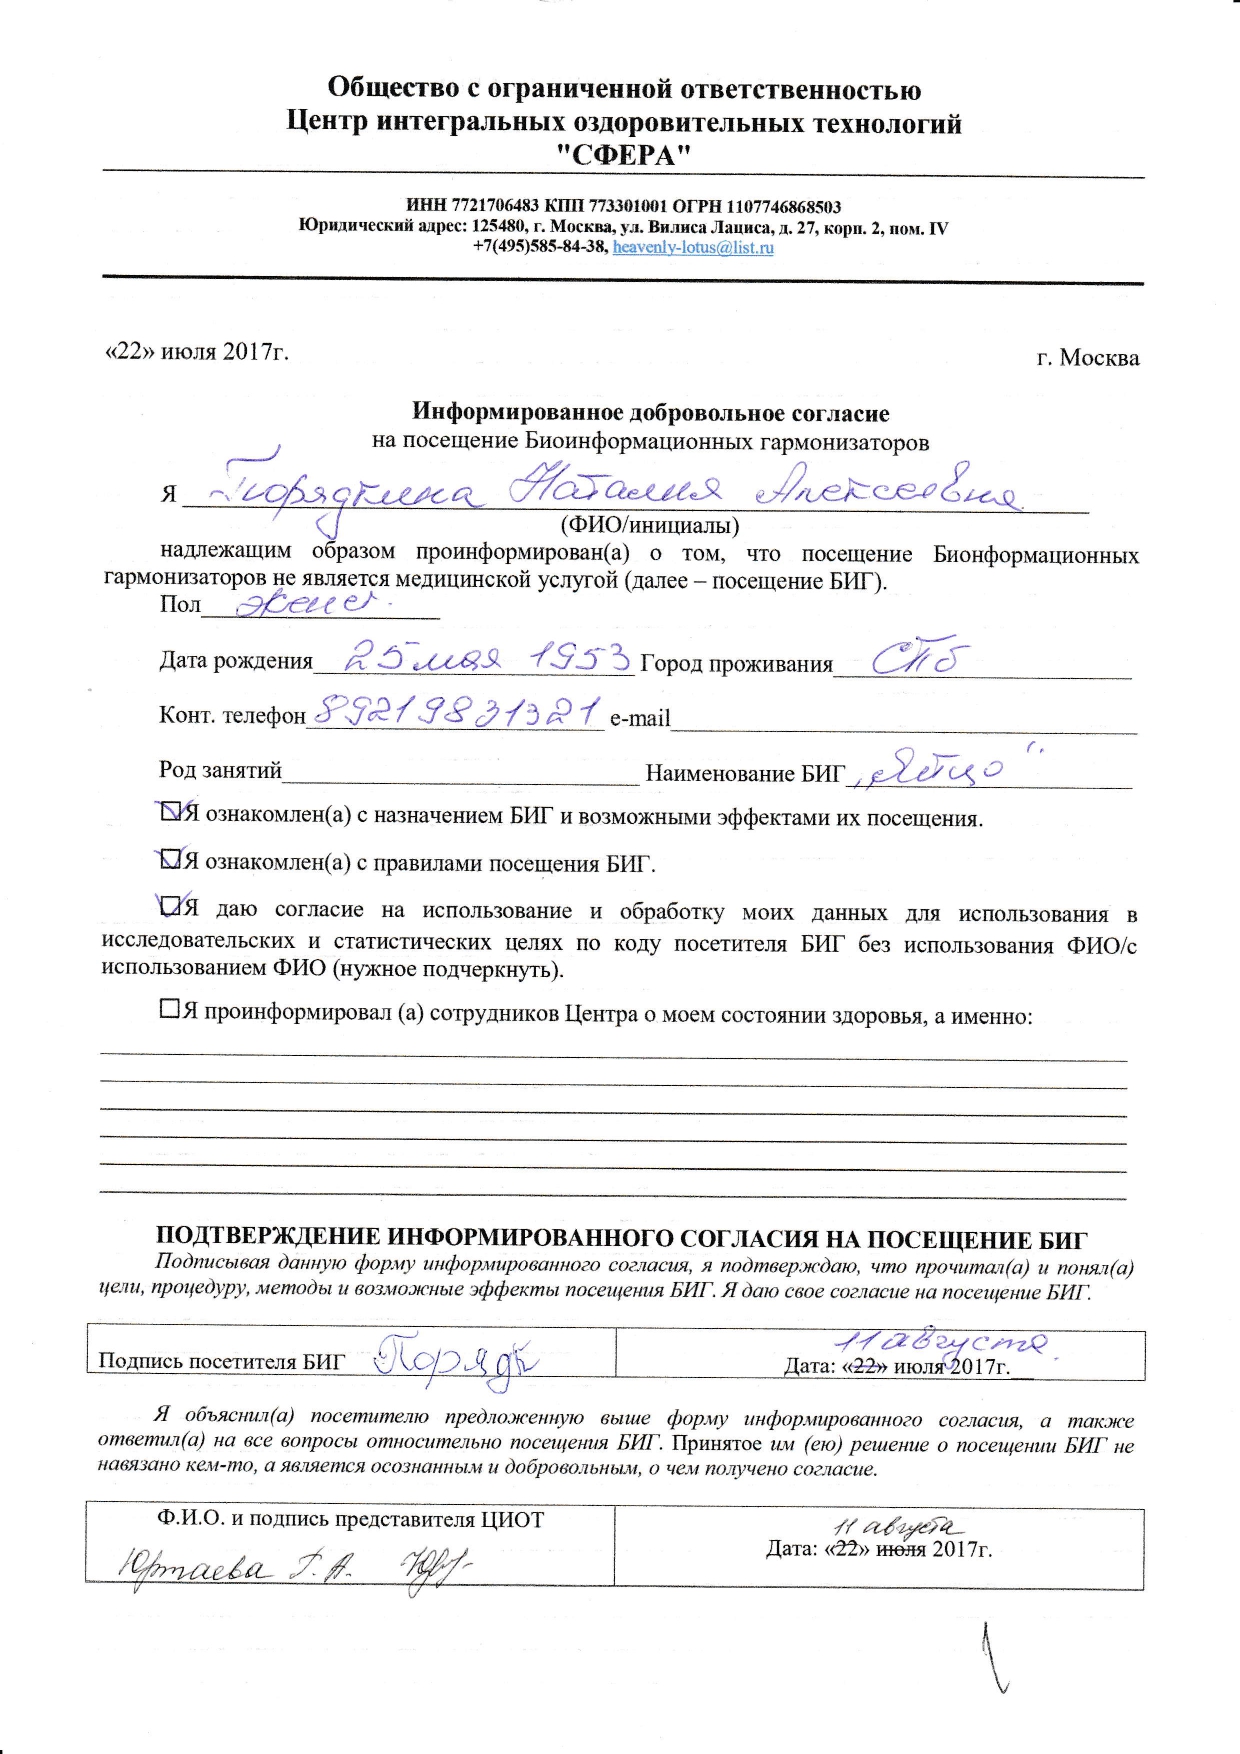 Общество с ограниченной ответственностью
Центр интегральных оздоровительных технологий
"СФЕРА"
ИНН 7721706483 КПП 773301001 ОГРН 1107746868503
Юридический адрес: 125480, г. Москва, ул. Вилиса Лациса, д. 27, корп. 2, пом. IV
+7(495)585-84-38, heavenly-lotus@list.ru
«22» июля 2017г. г. Москва
Информированное добровольное согласие
на посещение Биоинформационных гармонизаторов
Я Порядкина Наталия Алексеевна
(ФИО/инициалы)
надлежащим образом проинформирован(а) о том, что посещение Бионформационных
гармонизаторов не является медицинской услугой (далее – посещение БИГ).
Пол женс.
Дата рождения 25 мая 1953 Город проживания СПб
Конт. телефон 89219831321 e-mail
Род занятий Наименование БИГ „Яйцо"
Я ознакомлен(а) с назначением БИГ и возможными эффектами их посещения.
Я ознакомлен(а) с правилами посещения БИГ.
Я даю согласие на использование и обработку моих данных для использования в
исследовательских и статистических целях по коду посетителя БИГ без использования ФИО/с
использованием ФИО (нужное подчеркнуть).
Я проинформировал (а) сотрудников Центра о моем состоянии здоровья, а именно:
ПОДТВЕРЖДЕНИЕ ИНФОРМИРОВАННОГО СОГЛАСИЯ НА ПОСЕЩЕНИЕ БИГ
Подписывая данную форму информированного согласия, я подтверждаю, что прочитал(а) и понял(а)
цели, процедуру, методы и возможные эффекты посещения БИГ. Я даю свое согласие на посещение БИГ.
11 августа
Подпись посетителя БИГ Поряд Дата: «22» июля 2017г.
Я объяснил(а) посетителю предложенную выше форму информированного согласия, а также
ответил(а) на все вопросы относительно посещения БИГ. Принятое им (ею) решение о посещении БИГ не
навязано кем-то, а является осознанным и добровольным, о чем получено согласие.
Ф.И.О. и подпись представителя ЦИОТ
11 августа
Дата: «22» июля 2017г.
Юртаева Г. А.